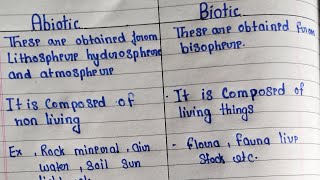 Abiotic
These are obtained from
Lithosphere hydrosphere
and atmosphere
It is composed of
non living
Ex, Rock mineral, air
water, soil sun
Biotic
These are obtained from
bisophere.
It is composed of
living things
flora, fauna live
stock etc.